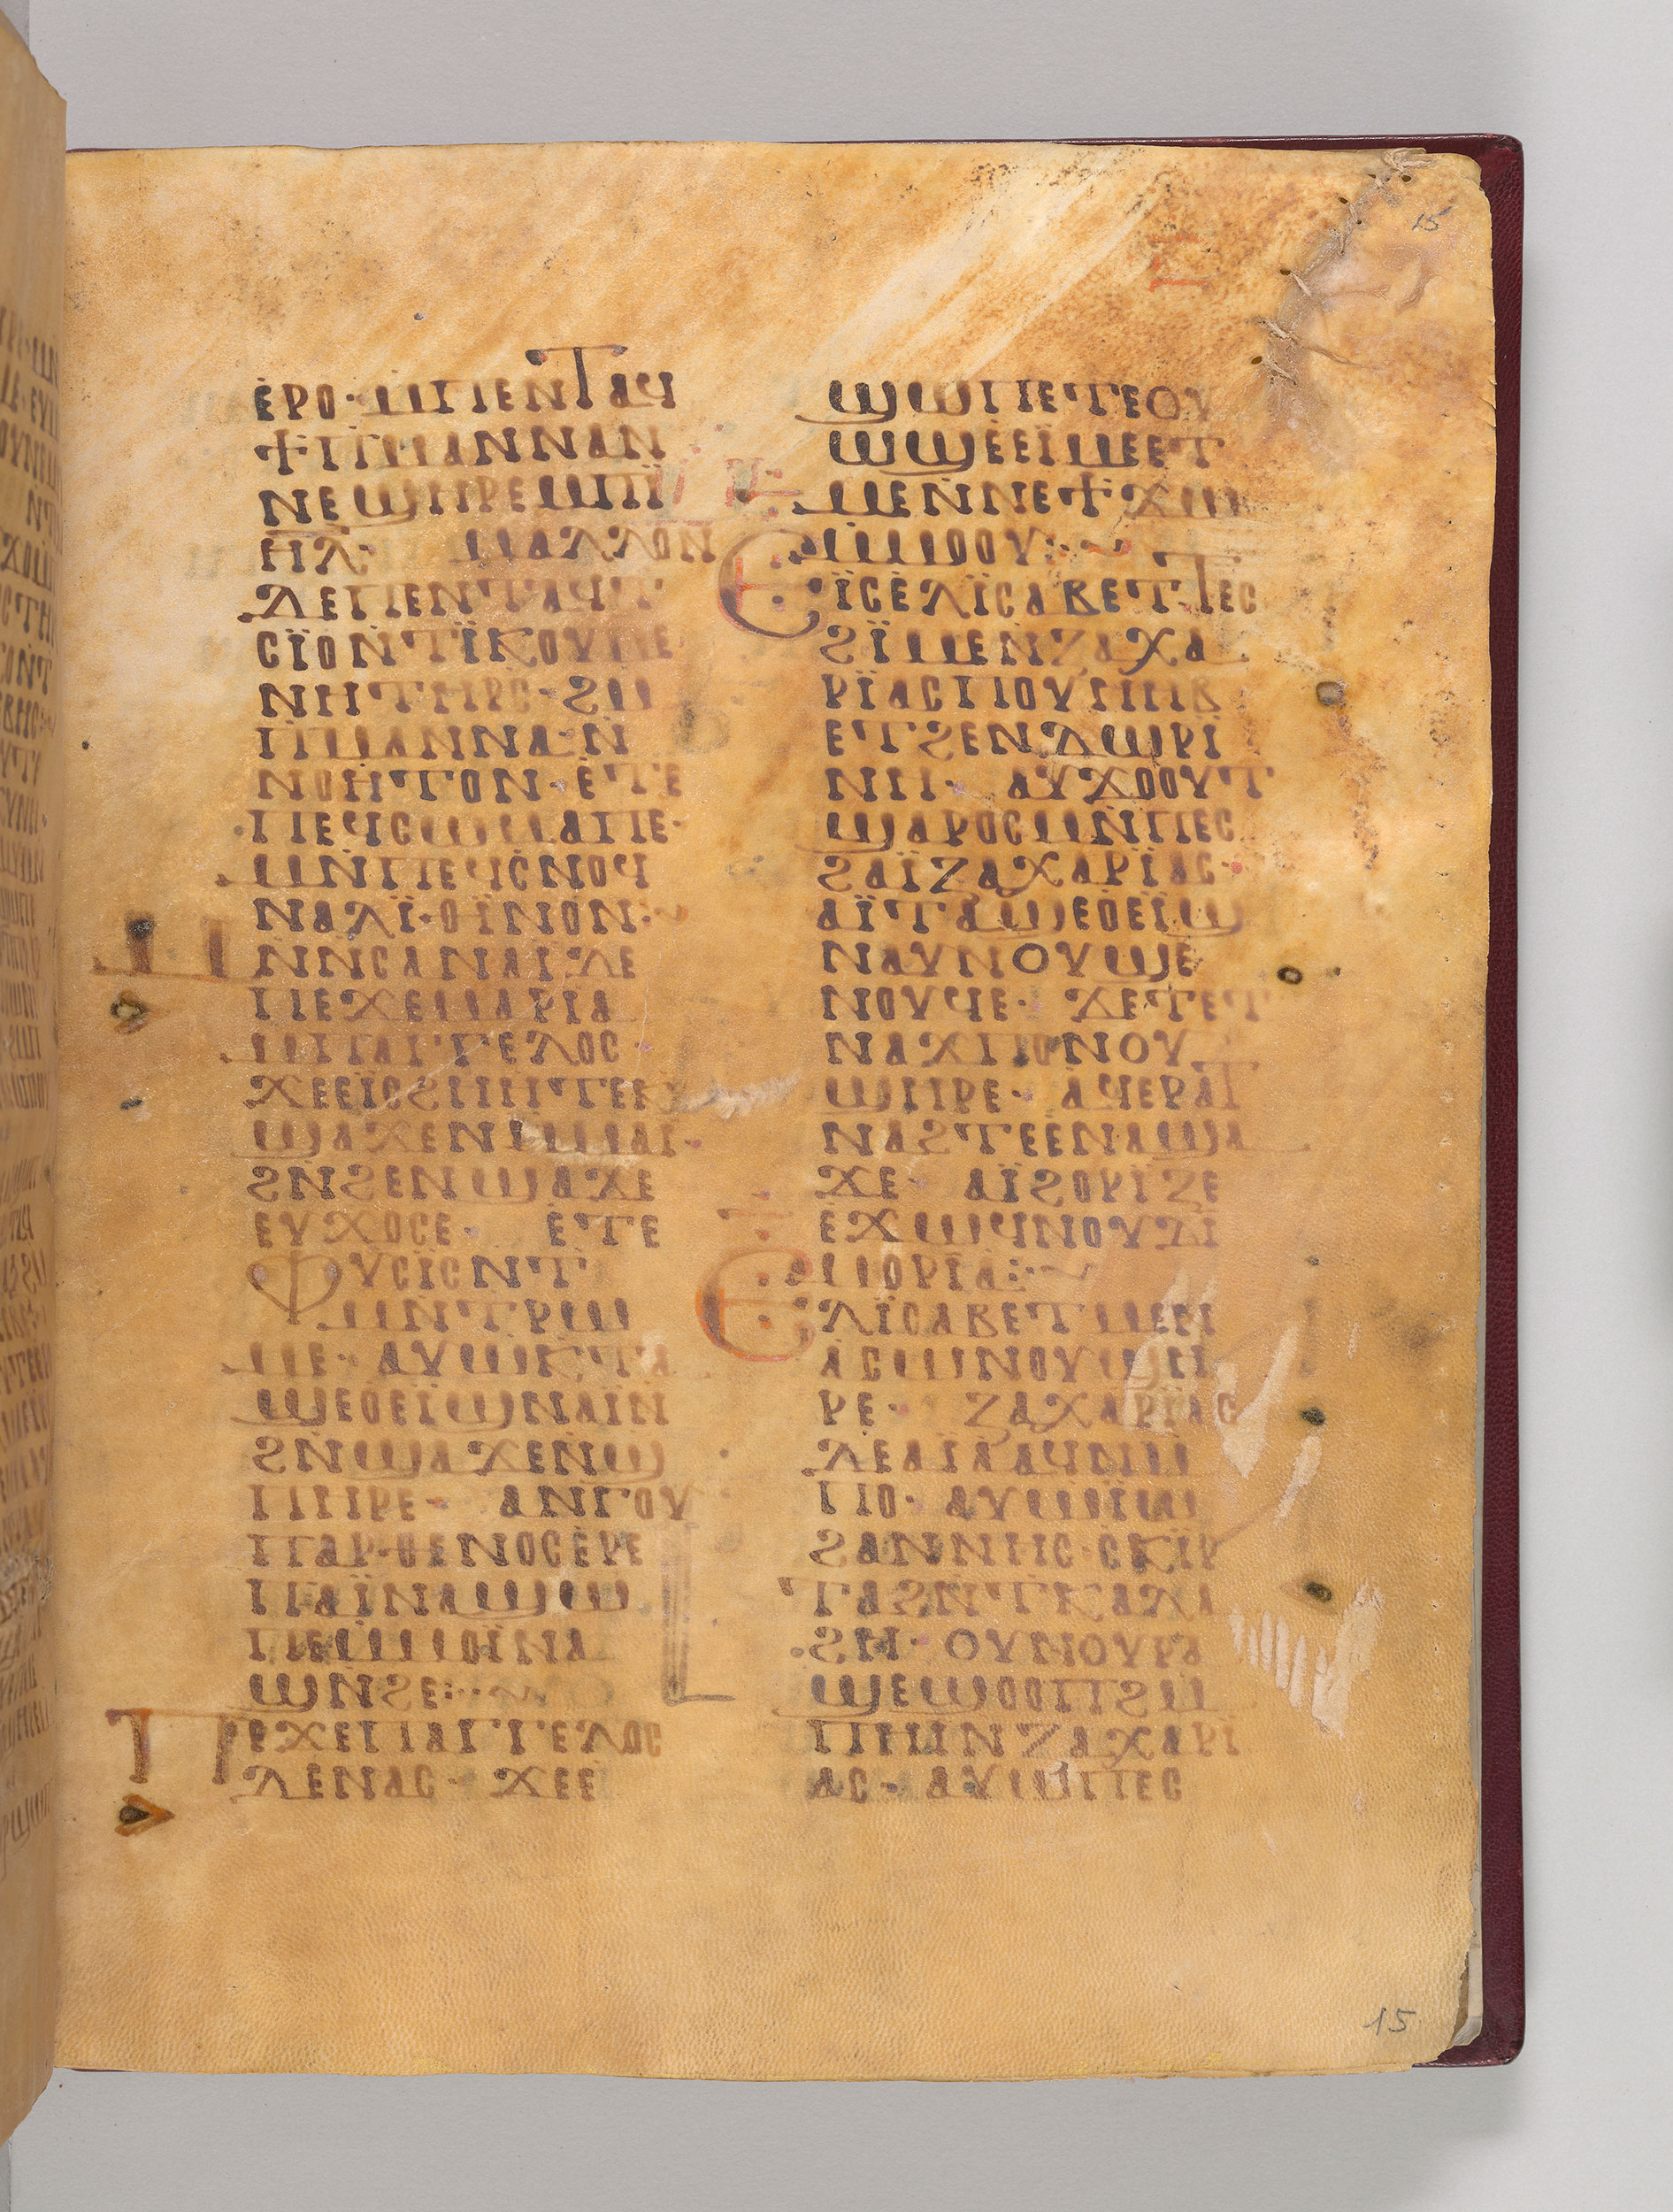 15
ⲉⲣⲟ· ⲙⲡⲉⲛⲧⲁϥ
ϯⲙⲡⲙⲁⲛⲛⲁⲛ
ⲛⲉϣⲏⲣⲉⲙⲡⲓ̈
ⲏⲗ· ⲙⲁⲗⲗⲟⲛ
ⲇⲉⲡⲉⲛⲧⲁϥⲧ
ⲥⲓ̈ⲟⲛ̇ⲧⲓ̈ⲕⲟⲩⲙⲉ
ⲛⲏⲧⲏⲣⲥ· ϩⲙ
ⲡⲙⲁⲛⲛⲁ·ⲛ̇
ⲛⲟⲏⲧⲟⲛ· ⲉ̇ⲧⲉ
ⲡⲉϥⲥⲱⲙⲁⲡⲉ·
ⲙⲛ̇ⲡⲉϥⲥ̇ⲛⲟϥ
ⲛⲁⲗⲓ̈·ⲑⲓ̈ⲛⲟⲛ·
ⲙⲛⲛ̇ⲥⲁⲛⲁⲓ̈ⲇⲉ
ⲡⲉϫⲉⲙⲁⲣⲓ̈ⲁ
ⲙⲡⲁⲅⲅⲉⲗⲟⲥ·
ϫⲉⲉⲓ̈ⲥϩⲏⲏⲧⲉⲕ
ϣⲁϫⲉⲛⲙ̇ⲙⲁⲓ̈·
ϩⲛ̇ϩⲉⲛϣⲁϫⲉ
ⲉⲩϫⲟⲥⲉ· ⲉ̇ⲧⲉ
ⲫⲩⲥⲓ̈ⲥⲛ̇ⲧ
ⲙⲛⲧⲣⲱ
ⲙⲉ· ⲁⲩⲱⲕ̇ⲧⲁ
ϣⲉⲟⲉⲓ̈ϣⲛⲁⲓ̈ⲛ
ϩⲛ̇ϣⲁϫⲉⲛ̇ϣ
ⲡⲏⲣⲉ· ⲁⲛⲅⲟⲩ
ⲡⲁⲣⲑⲉⲛⲟⲥⲉ̇ⲣⲉ
ⲡⲁⲓ̈ⲛⲁϣⲱ
ⲡⲉⲙⲙⲟⲓ̈ⲛⲁ
ϣⲛ̇ϩⲉ:
ⲡⲉϫⲉⲡⲁⲅⲅⲉⲗⲟⲥ
ⲇⲉⲛⲁⲥ· ϫⲉⲉ
ϣⲱⲡⲉⲧⲉⲟⲩ
ⲱϣⲉ̇ⲉⲓ̈ⲙⲉⲉⲧ
ⲙⲉⲛ̇ⲛⲉϯϫⲱ
ⲙⲙⲟⲟⲩ:
ⲉⲓ̈ⲥⲉ̇ⲗⲓ̈ⲥⲁⲃⲉⲧ·ⲧⲉⲥ
ϩⲓ̈ⲙⲉⲛ̇ⲍⲁⲭⲁ
ⲣⲓ̈ⲁⲥⲡⲟⲩⲏⲏⲃ
ⲉⲧϩⲉⲛⲇⲱⲣⲓ̈
ⲛⲏ· ⲁⲩϫⲟⲟⲩⲧ
ϣⲁⲣⲟⲥⲙⲛ̇ⲡⲉⲥ
ϩⲁⲓ̈ⲍⲁⲭⲁⲣⲓ̈ⲁⲥ·
ⲁⲓ̈ⲧⲁϣⲉⲟⲉⲓ̈ϣ
ⲛⲁⲩⲛⲟⲩϣⲉ
ⲛⲟⲩϥⲉ· ϫⲉⲧⲉⲧ
ⲛⲁϫⲡⲟⲛⲟⲩ
ϣⲏⲣⲉ· ⲁϥⲉⲣⲁⲧ
ⲛⲁϩⲧⲉⲉ̇ⲛⲁϣⲁ
ϫⲉ· ⲁⲓ̈ϩⲟⲣⲓ̈ⲍⲉ
ⲉ̇ϫⲱϥⲛⲟⲩⲁⲓ̈
ⲙⲟⲣⲓ̈ⲁ:
ⲉⲗⲓ̈ⲥⲁⲃⲉⲧⲙⲉⲛ
ⲁⲥⲱⲛⲟⲩϣⲏ
ⲣⲉ· ⲍⲁⲭⲁⲣⲓ̈ⲁⲥ
ⲇⲉⲁⲓ̈ⲁⲁϥⲛⲙ̇
ⲡⲟ· ⲁⲩⲱⲓ̈ⲱ
ϩⲁⲛⲛⲏⲥ·ⲥⲕⲓ̈ⲣ
ⲧⲁϩⲛ̇ⲧⲕⲁⲗⲁ
ϩⲏ· ⲟⲩⲛⲟⲩⲣⲁ
ϣⲉϣⲟⲟⲡϩⲙ
ⲡⲏⲓ̈ⲛⲍⲁⲭⲁⲣⲓ̈
ⲁⲥ· ⲁⲩⲱⲡⲉⲥ
15